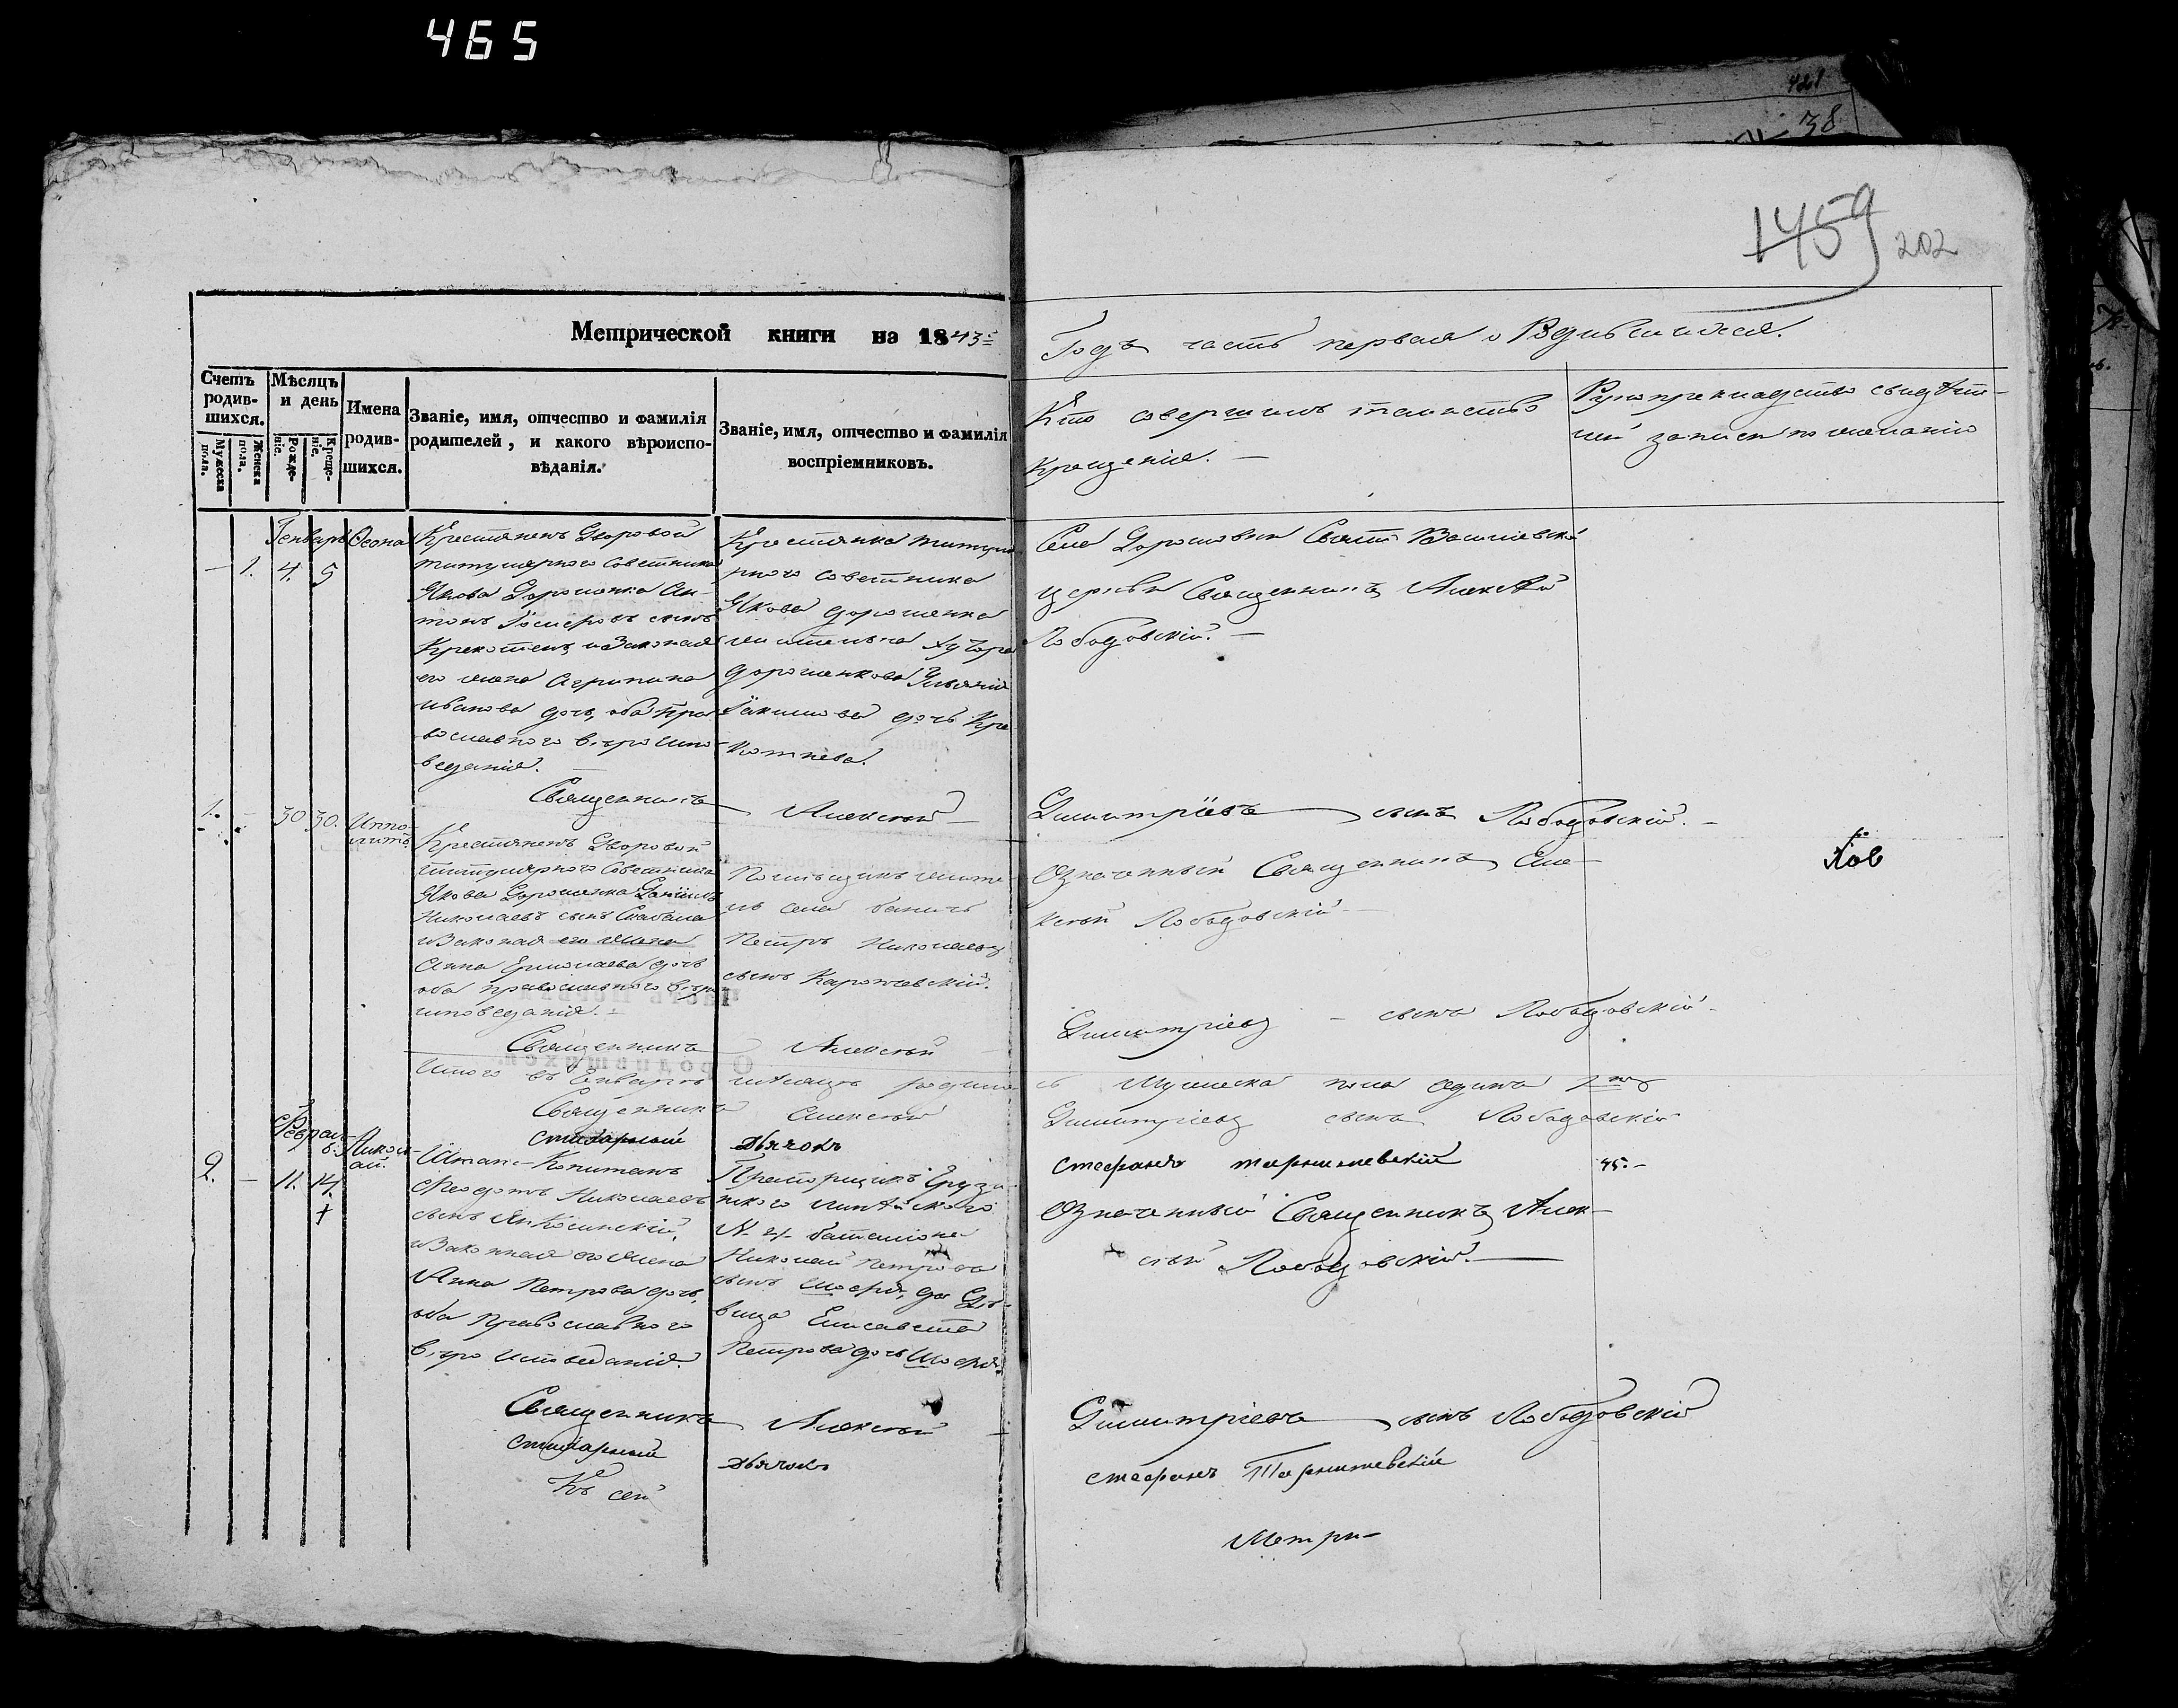 465
421
38
1459 202
Метрической книги на 1843:
Годъ часть первая о Родившихся.
Счетъ родив-шихся.
Мужеска пола.
Женска пола.
Мѣсяцъ и день
Рожде-ніе.
Креще-ніе.
Имена родив-шихся.
Званіе, имя, отчество и фамилія
родителей, и какого вѣроиспо-
вѣданія.
Званіе, имя, отчество и фамилія
воспріемниковъ.
Кто совершилъ таинство
Крещенія. —
Рукоприкладство свидѣте-
лей записи по желанію
— 1. 4. 5
Генварь
Крестянинъ Дворовой
титулярного Советника
Якова Дорошенка Ан-
тонъ сынъ
и Законая
его жена Агрипина
Иванова дочь, оба пра
вославного вѣроиспо-
веданія.
Крестянка титуля
рного советника
Якова Дорошенка
жителька хутора
Дорошенкова
Іакимова дочь Кре
котнева.
Села Дорошовки Свято Василевской
церкви Священникъ Алексѣй
Лободовскій. —
Священникъ Алексѣй Димитріевъ сынъ Лободовскій. —
1. — 30 30. Иппо-
литъ.
Крестянинъ Дворовой
титулярного Советника
Якова Дорошенка Даніилъ
Николаевъ сынъ
и Законая его жена
Анна Ермолаева дочь
оба православного вѣро
исповеданія. —
жите-
ль села
Петръ Николаевъ
сынъ
Означенный Священникъ Але-
ксѣй Лободовскій —
Священникъ Алексѣй Димитріевъ — сынъ Лободовскій —
Итого въ Енварѣ мѣсяцѣ родило сь Мужеска пола одинъ
Священникъ Алексѣй Димитріевъ сынъ Лободовскій
стихарный Дьячокъ стефанъ 45. —
Феврал-
ь.
2. — 11. 14. Никол-
ай.
+
Штапс-Капитанъ
Феодотъ Николаевъ
сынъ Янковскій,
и Законная его жена
Анна Петрова дочь,
оба Православного
вѣро исповеданія.
Прапорщикъ Грузи-
нского линѣйного
баталіона
Николай Петровъ
сынъ да Дѣ-
вица Елисавета
Петрова дочь
Означенный Священникъ Алек-
сѣй Лободовскій. —
Священникъ Алексѣй Димитріевъ сынъ Лободовскій
стихарный Дьячокъ стефанъ
Къ сей Метри-